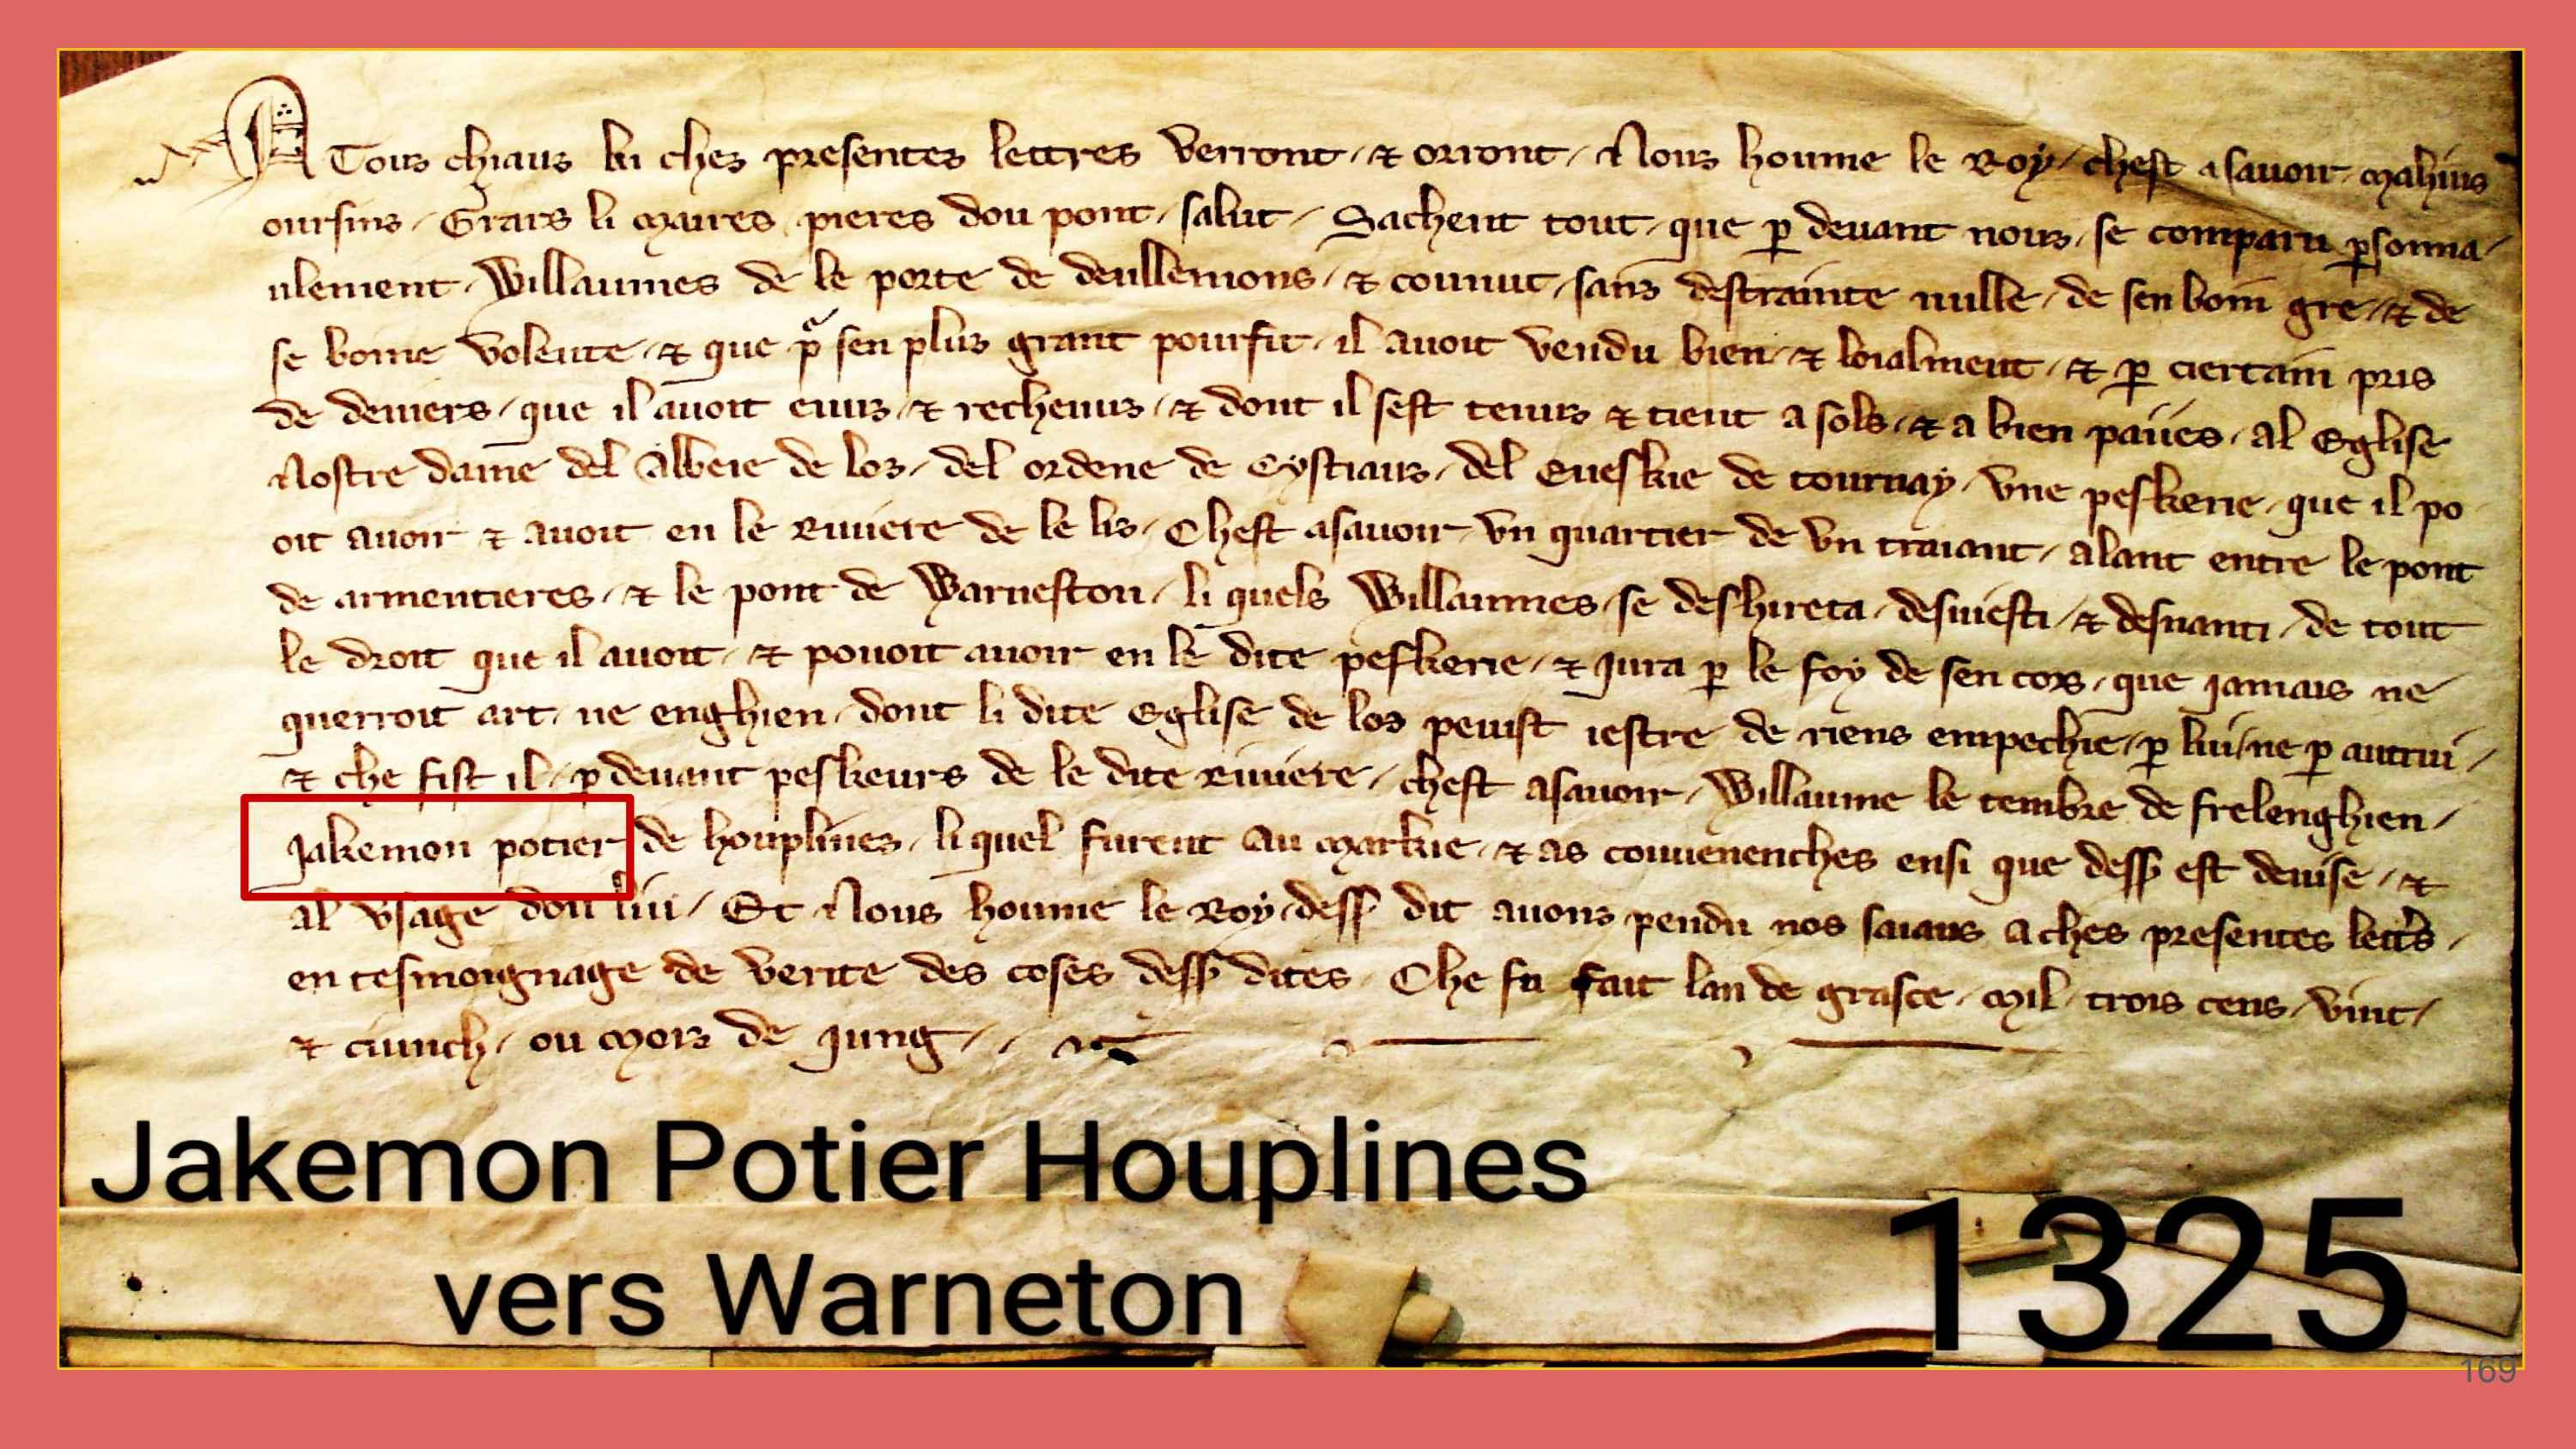 A Tous chiaus ki ches presentes lettres verront / & orront / Nous houme le Roy / chest asavoir mahius
oursins / Grars li maires pieres dou pont / salut / Sachent tout / que p devant nous / se comparu psonna /
ulement / Willaumes de le porte de deullemons / & connut / sans destrainte nulle / de sen boin gre / & de
se boine volente / & que p sen plus grant pourfit / il avoit vendu bien & loialment / & p ciertain pris
de deniers / que il avoit euus & rechevus / & dont il sest tenus & tient a sols / & a bien paiies / al Eglise
Nostre dame del Abbeie de los / del ordene de Cystiaus / del Eveskie de tournay / Une peskerie / que il po
oit avoir & avoit en le Riviere de le lis / Chest asavoir un quartier de un traiant / alant entre le pont
de armentieres / & le pont de Warneston / li quels Willaumes se deshireta / desviesti / & desvanti / de tout
le droit que il avoit / & pouoit avoir en le dite peskerie / & jura p le foy de sen cors / que jamais ne
querroit art / ne enghien / dont li dite Eglise de los peuist iestre de riens empechie / p lui / ne p autrui /
& che fist il / p devant peskeurs de le dite Riviere / chest asavoir / Willaume le tembre de frelenghien /
Jakemon potier de houplines / li quel furent au markie / & as convenenches ensi que dess est devise / &
al usage dou liu / Et Nous houme le Roy dess dit avons pendu nos saiaus a ches presentes letts /
en tesmoignage de verite des coses dess dites / Che fu fait lan de grasce / mil / trois cens / vint /
& ciunch / ou mois de jung /
Jakemon Potier Houplines
vers Warneton
1325
169